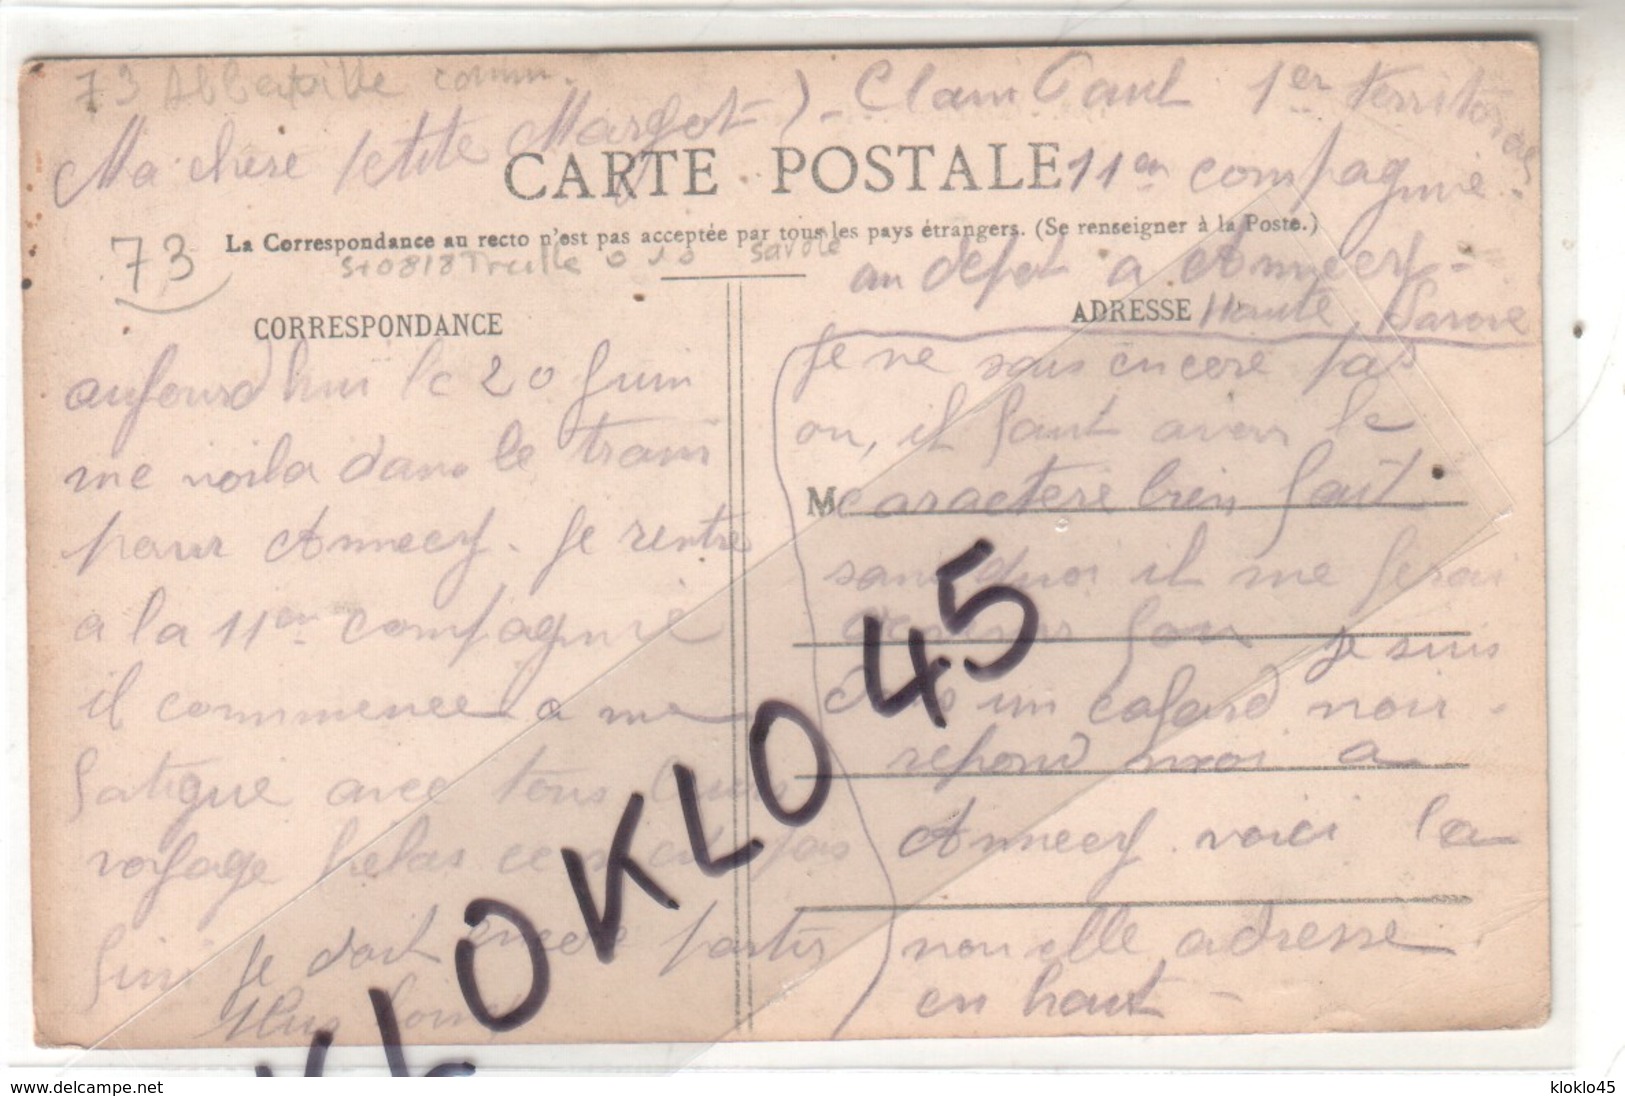 73 Albertville comm.
Ma chere petite Margot
CARTE POSTALE
La Correspondance au recto n'est pas acceptée par tous les pays étrangers. (Se renseigner à la Poste.)
73
Savoie
CORRESPONDANCE
aujourd hui le 20 Juin
me voila dans le train
pour Annecy. Je rentre
a la 11em compagnie
il commence a me
fatigue avec tous leurs
voyage helas ce n est pas
fini je doit encore partir
plus loin
Clam Paul 1er territorial
11em compagnie
au depot a Annecy-
ADRESSE Haute Savoie
Je ne sais encore pas
ou, il faut avoir le
M caractere bien fait
sans quoi il me ferai
devenir fou je suis
dans un cafard noir.
repond moi a
Annecy voici la
nouvelle adresse
en haut-
KLOKLO 45
www.delcampe.net
kloklo45